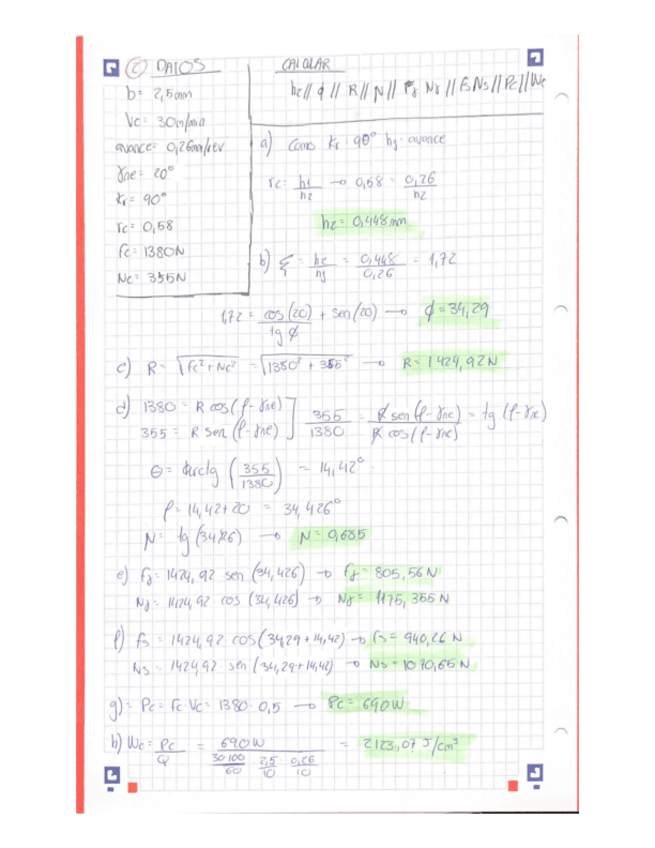 C) DATOS
b= 2,5mm
Vc= 30m/min
avance= 0,26mm/rev
γne= 20°
Kr= 90°
rc= 0,58
Fc= 1380N
Nc= 355N
CALCULAR
h2 // ϕ // R // N // Fγ Nγ // Fs Ns // Pc // Wc
a) Como Kr= 90° h1= avance
rc= h1/h2 → 0,58 = 0,26/h2
h2= 0,448mm
b) ξ= h2/h1 = 0,448/0,26 = 1,72
1,72 = cos(20)/tg ϕ + sen(20) → ϕ= 34,29
c) R= √Fc²+Nc² = √1380²+355² → R= 1424,92N
d) 1380 = R cos(ρ-γne)
355 = R sen(ρ-γne)] 355/1380 = R sen(ρ-γne)/R cos(ρ-γne) = tg(ρ-γne)
Θ= arctg (355/1380) = 14,42°
ρ= 14,42+20 = 34,426°
N= tg(34,426) → N= 0,685
e) Fγ= 1424,92 sen (34,426) → Fγ= 805,56 N
Nγ= 1424,92 cos (34,426) → Nγ= 1175,355 N
f) Fs= 1424,92 cos(34,29+14,42) → Fs= 940,26 N
Ns= 1424,92 sen (34,29+14,42) → Ns= 1070,65 N
g)= Pc= Fc·Vc= 1380·0,5 → Pc= 690W
h) Wc= Pc/Q = 690W / (30·100/60 · 2,5/10 · 0,26/10) = 2123,07 J/cm³